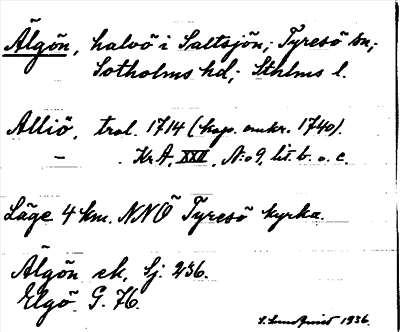 Älgön, halvö i Saltsjön; Tyresö sn;
Sotholms hd; Sthlms l.
Alliö, trol. 1714 (kop. omkr. 1740).
— Kr A, XXII, N:o 9, lit. b. o. c.
Läge 4 km. NNÖ Tyresö kyrka.
Älgön ek, Sj. 236.
Elgö G. 76.
1936.